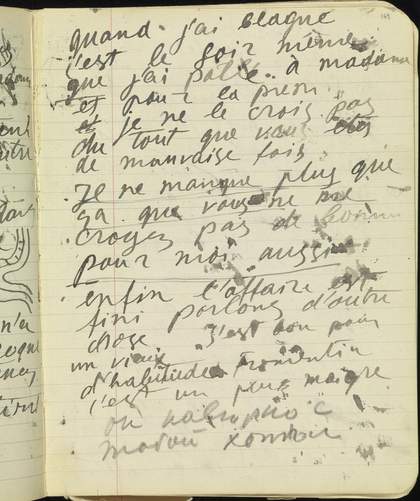 quand j'ai blagué
c'est le soir même
que j'ai parlé à madame
et pour la prem
et je ne le crois pas
du tout que vous etes
de mauvaise fois
je ne manque plus que
ça que vous ne me
croyez pas de bonne
pour moi aussi
enfin l'affaire est
fini parlons d'autre
chose. c'est bon pour
un vieux
d'habitude
c'est un peu maigre